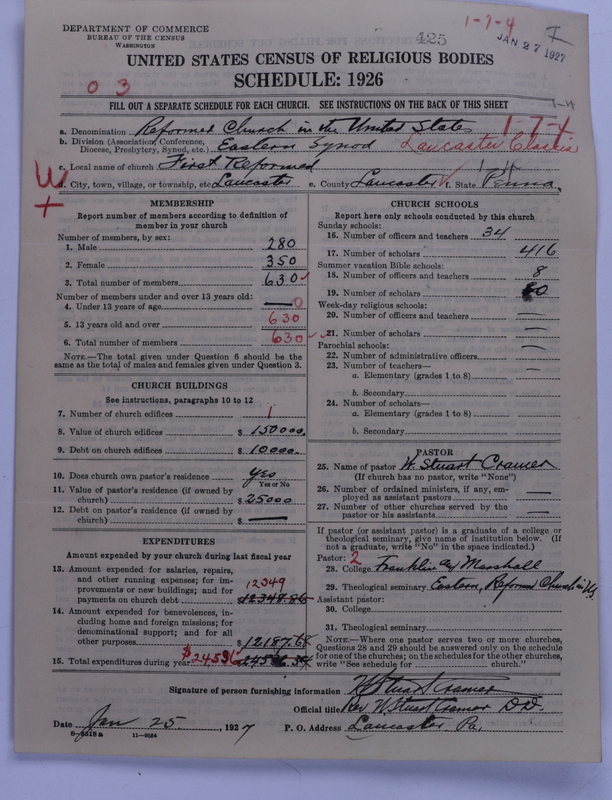 DEPARTMENT OF COMMERCE
BUREAU OF THE CENSUS
WASHINGTON
425
1-7-4
JAN 27 1927
UNITED STATES CENSUS OF RELIGIOUS BODIES
SCHEDULE: 1926
0 3
FILL OUT A SEPARATE SCHEDULE FOR EACH CHURCH. SEE INSTRUCTIONS ON THE BACK OF THIS SHEET
a. Denomination Reformed Church in the United States 1-7-4
b. Division (Association, Conference, Diocese, Presbytery, Synod, etc.) Eastern Synod Lancaster Classis
c. Local name of church First Reformed
d. City, town, village, or township, etc. Lancaster e. County Lancaster f. State Penna.
MEMBERSHIP
Report number of members according to definition of
member in your church
Number of members, by sex:
1. Male 280
2. Female 350
3. Total number of members 630
Number of members under and over 13 years old:
4. Under 13 years of age — 0
5. 13 years old and over 630
6. Total number of members 630
NOTE.—The total given under Question 6 should be
same as the total of males and females given under Question 3.
CHURCH BUILDINGS
See instructions, paragraphs 10 to 12
7. Number of church edifices 1
8. Value of church edifices $ 150000.
9. Debt on church edifices $ 10000.
10. Does church own pastor's residence Yes
Yes or No
11. Value of pastor's residence (if owned by
church) $ 25000
12. Debt on pastor's residence (if owned by
church) $ —
EXPENDITURES
Amount expended by your church during last fiscal year
13. Amount expended for salaries, repairs,
and other running expenses; for im-
provements or new buildings; and for
payments on church debt 12349 12348.86
14. Amount expended for benevolences, in-
cluding home and foreign missions; for
denominational support; and for all
other purposes $ 12187.68
15. Total expenditures during year $24536
CHURCH SCHOOLS
Report here only schools conducted by this church
Sunday schools:
16. Number of officers and teachers 34
17. Number of scholars 416
Summer vacation Bible schools:
18. Number of officers and teachers 8
19. Number of scholars 80
Week-day religious schools:
20. Number of officers and teachers —
21. Number of scholars —
Parochial schools:
22. Number of administrative officers —
23. Number of teachers—
a. Elementary (grades 1 to 8) —
b. Secondary
24. Number of scholars—
a. Elementary (grades 1 to 8) —
b. Secondary —
PASTOR
25. Name of pastor W. Stuart Cramer
(If church has no pastor, write "None")
26. Number of ordained ministers, if any, em-
ployed as assistant pastors —
27. Number of other churches served by the
pastor or his assistants —
If pastor (or assistant pastor) is a graduate of a college or
theological seminary, give name of institution below. (If
not a graduate, write "No" in the space indicated.)
Pastor: 2
28. College Franklin and Marshall
29. Theological seminary Eastern, Reformed Church in U.S.
Assistant pastor:
30. College
31. Theological seminary
NOTE.—Where one pastor serves two or more churches,
Questions 28 and 29 should be answered only on the schedule
for one of the churches; on the schedules for the other churches,
write "See schedule for church."
Signature of person furnishing information W Stuart Cramer
Official title Rev. W Stuart Cramer D.D.
Date Jan 25, 1927 P. O. Address Lancaster Pa.
8-5518a 11-9084